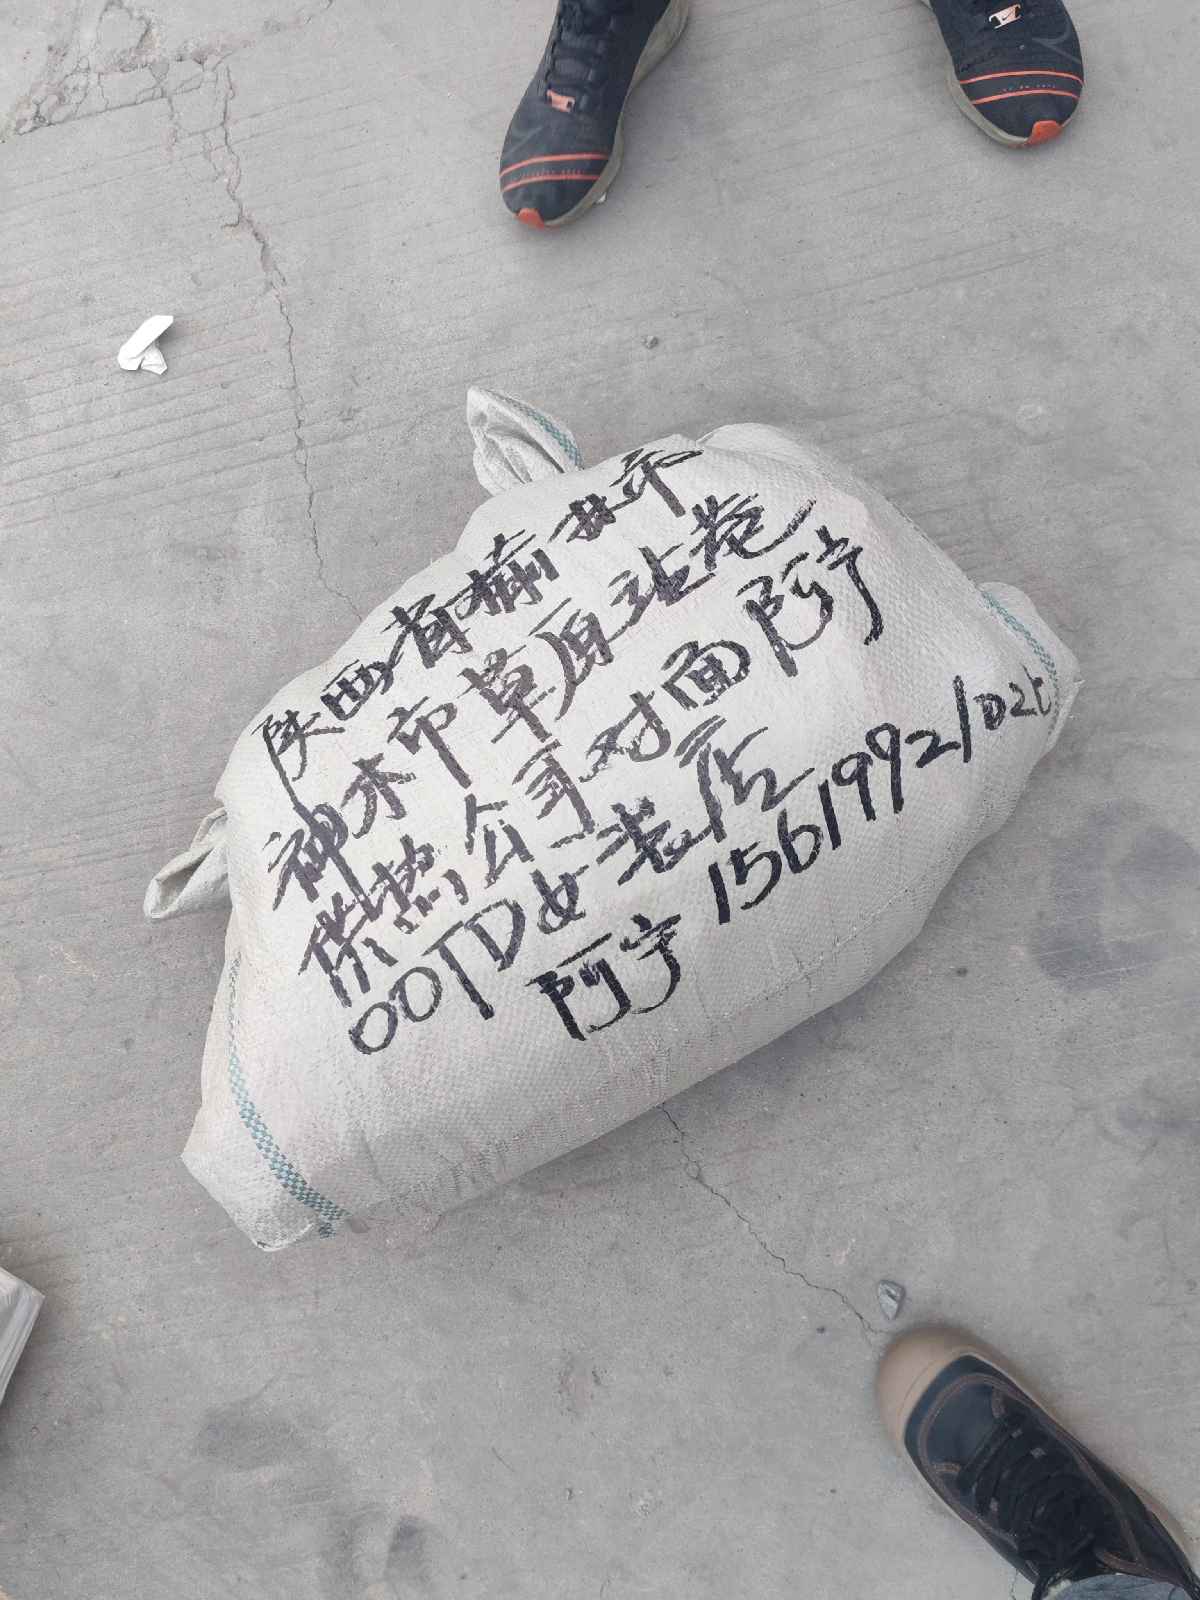 陕西省榆林市
神木市草原站巷
供热公司对面阿宁
OOTD女装店
阿宁 15619921026